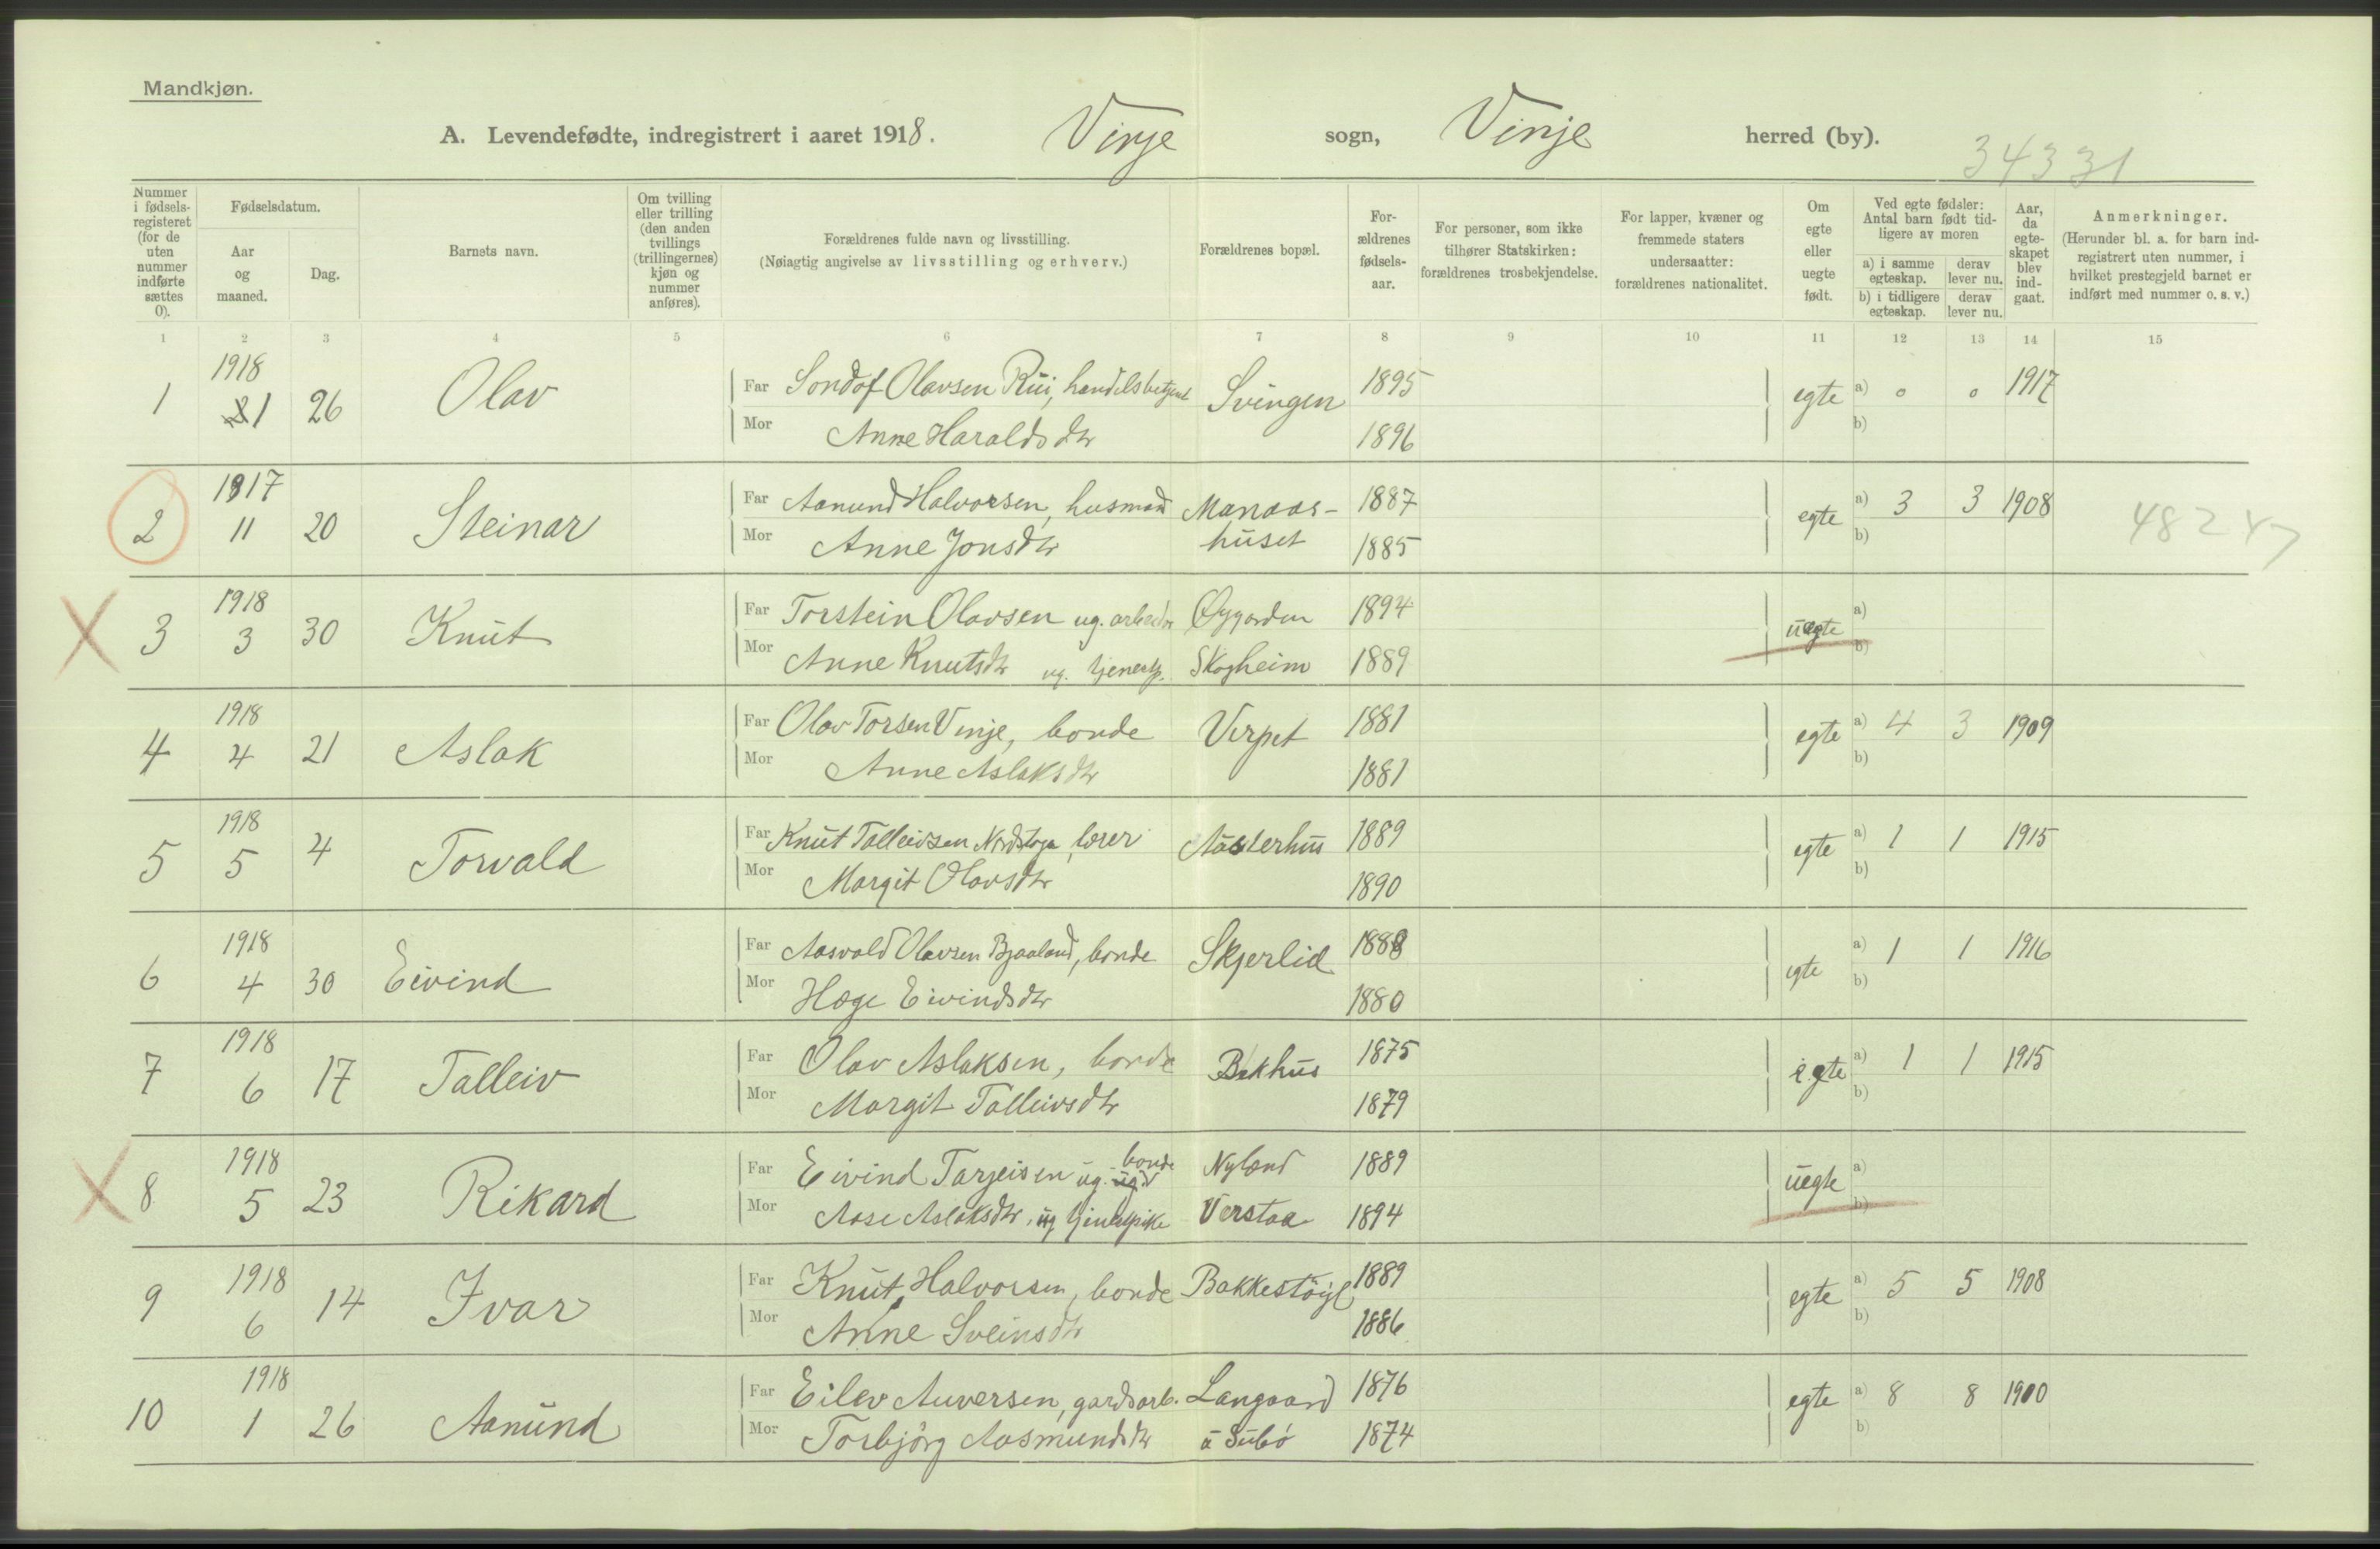 Mandkjøn.
A. Levendefødte, indregistrert i aaret 1918. Vinje sogn, Vinje herred (by).
34331
Nummer i fødsels-registeret (for de uten nummer indførte sættes 0).
Fødselsdatum.
Aar og maaned.
Dag.
Barnets navn.
Om tvilling eller trilling (den anden tvillings (trillingernes) kjøn og nummer anføres).
Forældrenes fulde navn og livsstilling.
(Nøiagtig angivelse av livsstilling og erhverv.)
Forældrenes bopæl.
For-ældrenes fødsels-aar.
For personer, som ikke tilhører Statskirken: forældrenes trosbekjendelse.
For lapper, kvæner og fremmede staters undersaatter: forældrenes nationalitet.
Om egte eller uegte født.
Ved egte fødsler: Antal barn født tid-ligere av moren
a) i samme egteskap. derav lever nu.
b) i tidligere egteskap. derav lever nu.
Aar, da egte-skapet blev ind-gaat.
Anmerkninger.
(Herunder bl. a. for barn ind-registrert uten nummer, i hvilket prestegjeld barnet er indført med nummer o. s. v.)
1 2 3 4 5 6 7 8 9 10 11 12 13 14 15
1 1918 1 26 Olav Far Sondof Olavsen Rui, handelsbetjent Svingen 1895 egte a) 0 0 1917
Mor Anne Haraldsdtr 1896 b)
2 1917 11 20 Steinar Far Aanund Halvorsen, husmand Manaas- 1887 egte a) 3 3 1908 48247
Mor Anne Jonsdtr huset 1885 b)
3 1918 3 30 Knut Far Torstein Olavsen ug. arbeider Øygarden 1894 uegte a)
Mor Anne Knutsdtr ug. tjenestp. Skogheim 1889 b)
4 1918 4 21 Aslak Far Olav Torsen Vinje, bonde Verpet 1881 egte a) 4 3 1909
Mor Anne Aslaksdtr 1881 b)
5 1918 5 4 Torvald Far Knut Talleivsen Nordstoga, lærer Austerhus 1889 egte a) 1 1 1915
Mor Margit Olavsdtr 1890 b)
6 1918 4 30 Eivind Far Aasvald Olavsen Bjaaland, bonde Skjerlid 1888 egte a) 1 1 1916
Mor Hæge Eivindsdtr 1880 b)
7 1918 6 17 Talleiv Far Olav Aslaksen, bonde Bakhus 1875 egte a) 1 1 1915
Mor Margit Talleivsdtr 1879 b)
8 1918 5 23 Rikard Far Eivind Tarjeisen ug. bonde Nyland 1889 uegte a)
Mor Aase Aslaksdtr, ug tjenestpike Verstaa 1894 b)
9 1918 6 14 Ivar Far Knut Halvorsen, bonde Bakkestøyl 1889 egte a) 5 5 1908
Mor Anne Sveinsdtr 1886 b)
10 1918 1 26 Aanund Far Eilev Auversen, gardsarb. Langaard 1876 egte a) 8 8 1900
Mor Torbjörg Aasmundsdtr u Subø 1874 b)